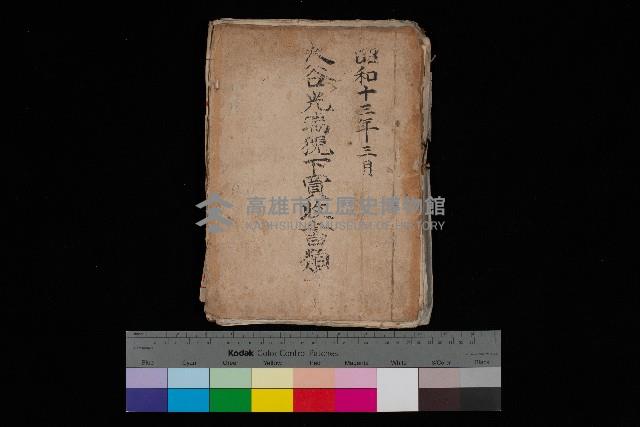 昭和十三年三月
大谷光瑞猊下買收書類
高雄市立歷史博物館
KAOHSIUNG MUSEUM OF HISTORY
Kodak Color Control Patches
Blue Cyan Green Yellow Red Magenta White 3/Color Black